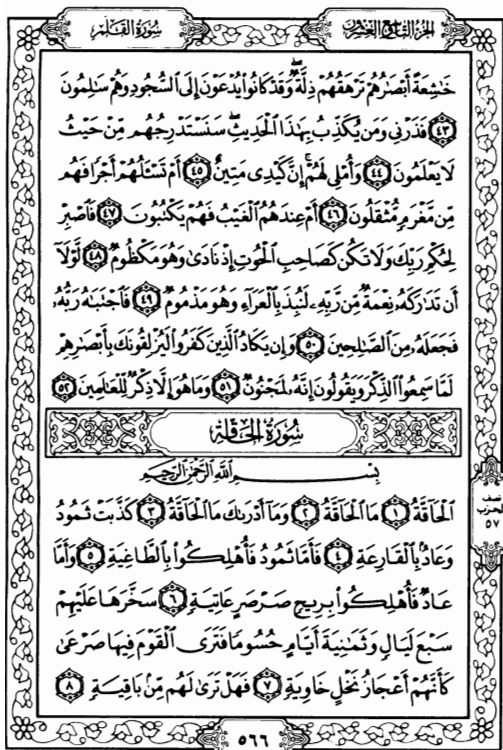 الجزء التاسع والعشرون
سورة القلم
خَٰشِعَةً أَبْصَٰرُهُمْ تَرْهَقُهُمْ ذِلَّةٌ ۖ وَقَدْ كَانُوا۟ يُدْعَوْنَ إِلَى ٱلسُّجُودِ وَهُمْ سَٰلِمُونَ
﴿٤٣﴾ فَذَرْنِى وَمَن يُكَذِّبُ بِهَٰذَا ٱلْحَدِيثِ ۖ سَنَسْتَدْرِجُهُم مِّنْ حَيْثُ
لَا يَعْلَمُونَ ﴿٤٤﴾ وَأُمْلِى لَهُمْ ۚ إِنَّ كَيْدِى مَتِينٌ ﴿٤٥﴾ أَمْ تَسْـَٔلُهُمْ أَجْرًا فَهُم
مِّن مَّغْرَمٍ مُّثْقَلُونَ ﴿٤٦﴾ أَمْ عِندَهُمُ ٱلْغَيْبُ فَهُمْ يَكْتُبُونَ ﴿٤٧﴾ فَٱصْبِرْ
لِحُكْمِ رَبِّكَ وَلَا تَكُن كَصَاحِبِ ٱلْحُوتِ إِذْ نَادَىٰ وَهُوَ مَكْظُومٌ ﴿٤٨﴾ لَّوْلَآ
أَن تَدَٰرَكَهُۥ نِعْمَةٌ مِّن رَّبِّهِۦ لَنُبِذَ بِٱلْعَرَآءِ وَهُوَ مَذْمُومٌ ﴿٤٩﴾ فَٱجْتَبَٰهُ رَبُّهُۥ
فَجَعَلَهُۥ مِنَ ٱلصَّٰلِحِينَ ﴿٥٠﴾ وَإِن يَكَادُ ٱلَّذِينَ كَفَرُوا۟ لَيُزْلِقُونَكَ بِأَبْصَٰرِهِمْ
لَمَّا سَمِعُوا۟ ٱلذِّكْرَ وَيَقُولُونَ إِنَّهُۥ لَمَجْنُونٌ ﴿٥١﴾ وَمَا هُوَ إِلَّا ذِكْرٌ لِّلْعَٰلَمِينَ ﴿٥٢﴾
سُورَةُ الحَاقَّة
بِسْمِ ٱللَّهِ ٱلرَّحْمَٰنِ ٱلرَّحِيمِ
ٱلْحَآقَّةُ ﴿١﴾ مَا ٱلْحَآقَّةُ ﴿٢﴾ وَمَآ أَدْرَىٰكَ مَا ٱلْحَآقَّةُ ﴿٣﴾ كَذَّبَتْ ثَمُودُ
وَعَادٌۢ بِٱلْقَارِعَةِ ﴿٤﴾ فَأَمَّا ثَمُودُ فَأُهْلِكُوا۟ بِٱلطَّاغِيَةِ ﴿٥﴾ وَأَمَّا
عَادٌ فَأُهْلِكُوا۟ بِرِيحٍ صَرْصَرٍ عَاتِيَةٍ ﴿٦﴾ سَخَّرَهَا عَلَيْهِمْ
سَبْعَ لَيَالٍ وَثَمَٰنِيَةَ أَيَّامٍ حُسُومًا فَتَرَى ٱلْقَوْمَ فِيهَا صَرْعَىٰ
كَأَنَّهُمْ أَعْجَازُ نَخْلٍ خَاوِيَةٍ ﴿٧﴾ فَهَلْ تَرَىٰ لَهُم مِّنۢ بَاقِيَةٍ ﴿٨﴾
نصف
الحزب
٥٧
٥٦٦